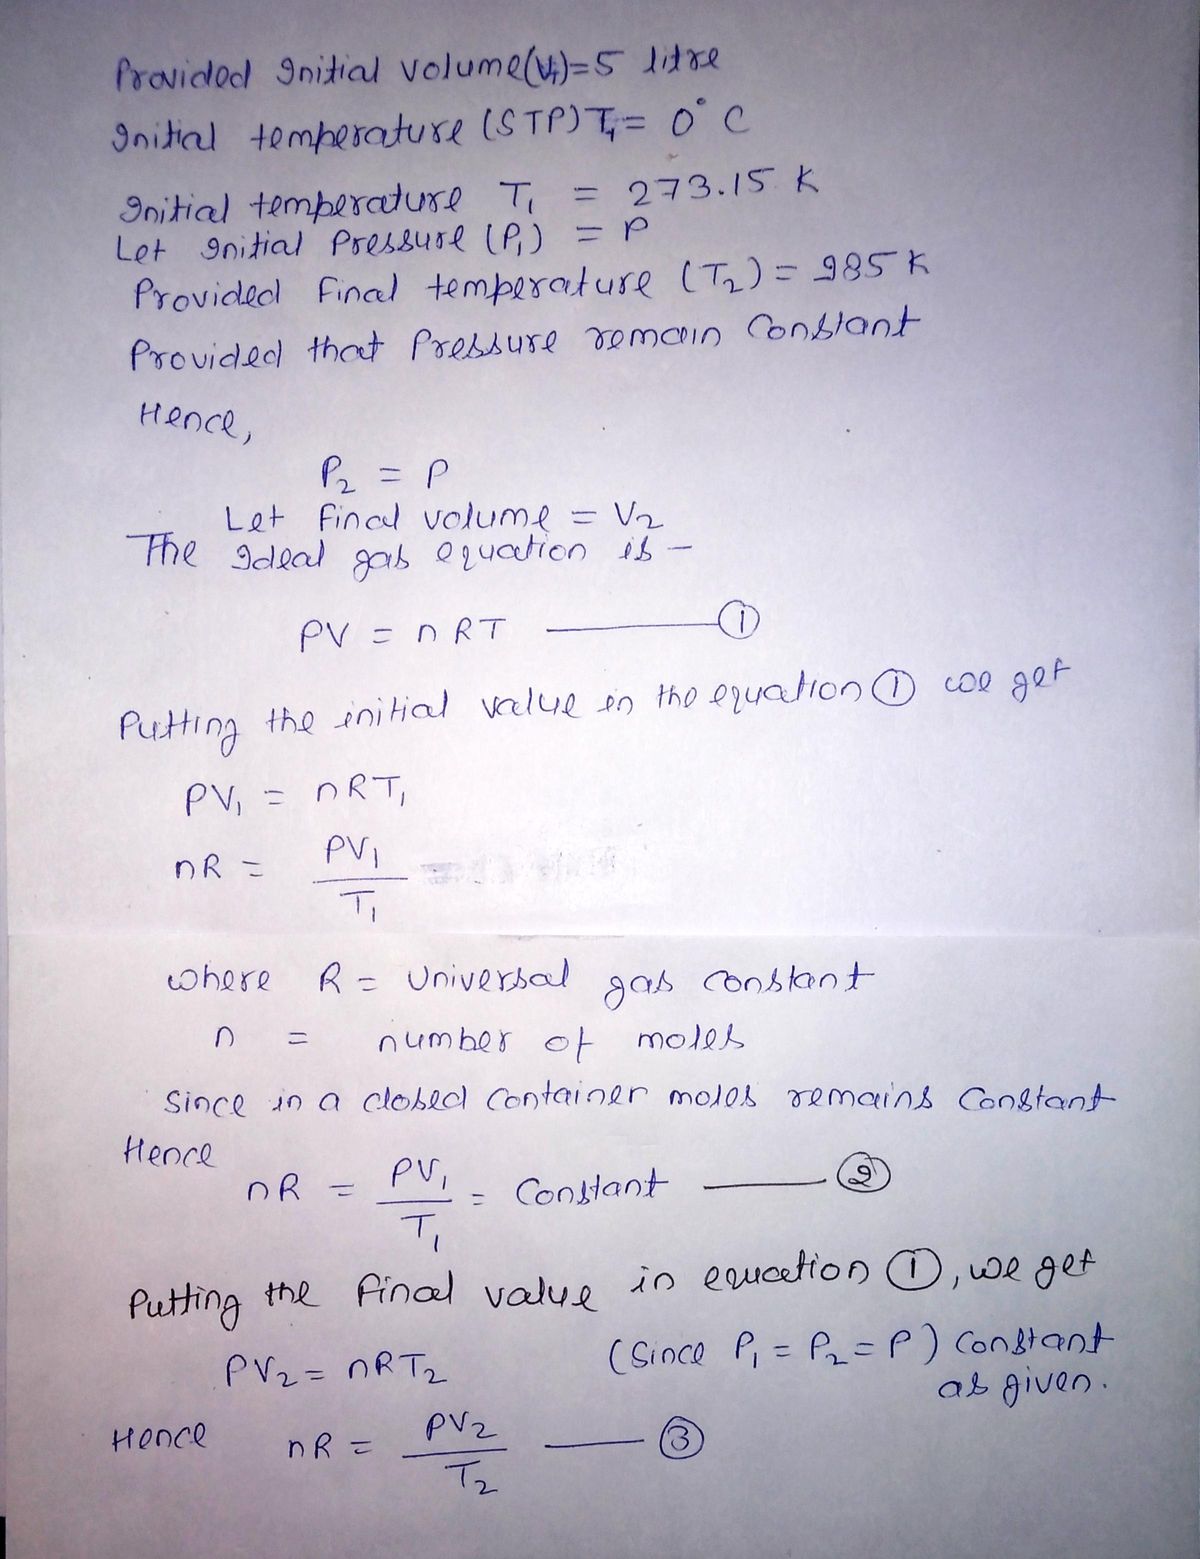 Provided Initial volume(V1)=5 litre
Initial temperature (STP) T1= 0° C
Initial temperature T1 = 273.15 K
Let Initial Pressure (P1) = P
Provided final temperature (T2) = 985 K
Provided that Pressure remain Constant
Hence,
P2 = P
Let final volume = V2
The Ideal gas equation is -
PV = nRT ——— 1
Putting the initial value in the equation 1 we get
PV1 = nRT1
nR = PV1
T1
where R = Universal gas constant
n = number of moles
Since in a closed Container moles remains Constant
Hence
nR = PV1 = Constant ——— 2
T1
Putting the final value in equation 1, we get
PV2 = nRT2 (Since P1 = P2 = P) Constant
as given.
Hence nR = PV2 ——— 3
T2